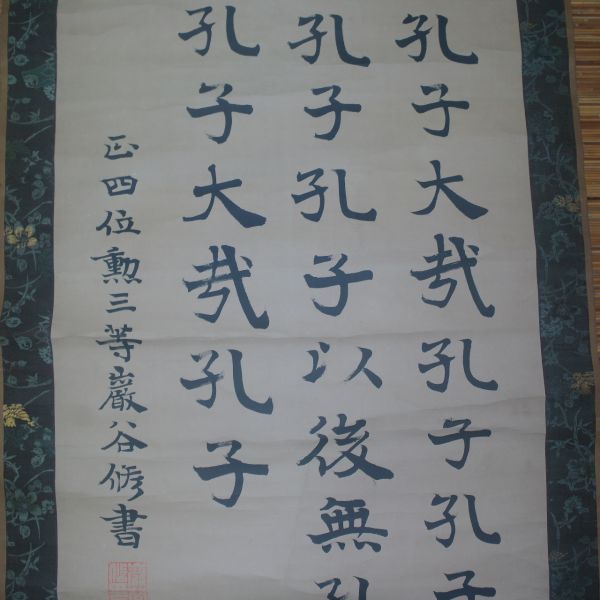 孔子大哉孔子孔子
孔子孔子以後無孔
孔子大哉孔子
正四位勲三等巖谷修書